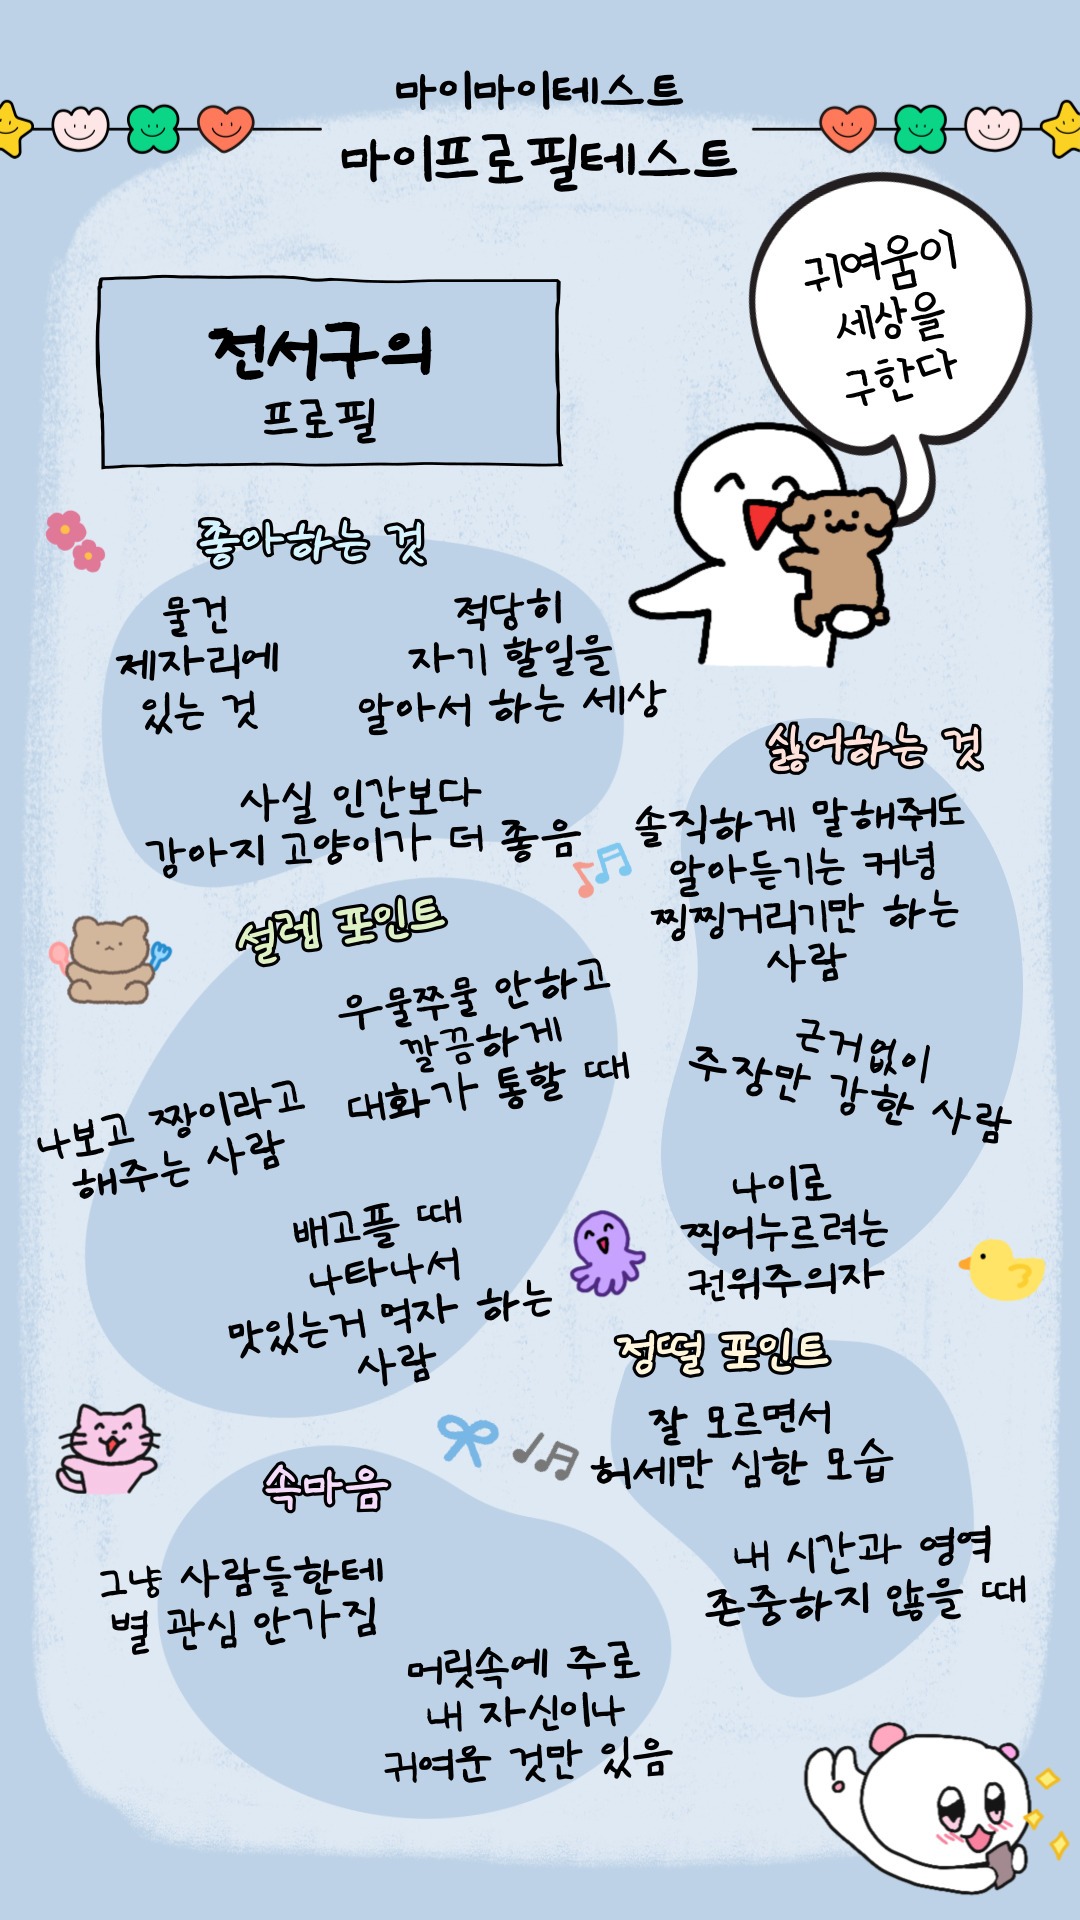 마이마이테스트
마이프로필테스트
귀여움이
세상을
구한다
전서구의
프로필
좋아하는 것
물건
제자리에
있는 것
적당히
자기 할일을
알아서 하는 세상
사실 인간보다
강아지 고양이가 더 좋음
싫어하는 것
솔직하게 말해줘도
알아듣기는 커녕
찡찡거리기만 하는
사람
근거없이
주장만 강한 사람
나이로
찍어누르려는
권위주의자
설렘 포인트
우물쭈물 안하고
깔끔하게
대화가 통할 때
나보고 짱이라고
해주는 사람
배고플 때
나타나서
맛있는거 먹자 하는
사람
정떨 포인트
잘 모르면서
허세만 심한 모습
내 시간과 영역
존중하지 않을 때
속마음
그냥 사람들한테
별 관심 안가짐
머릿속에 주로
내 자신이나
귀여운 것만 있음